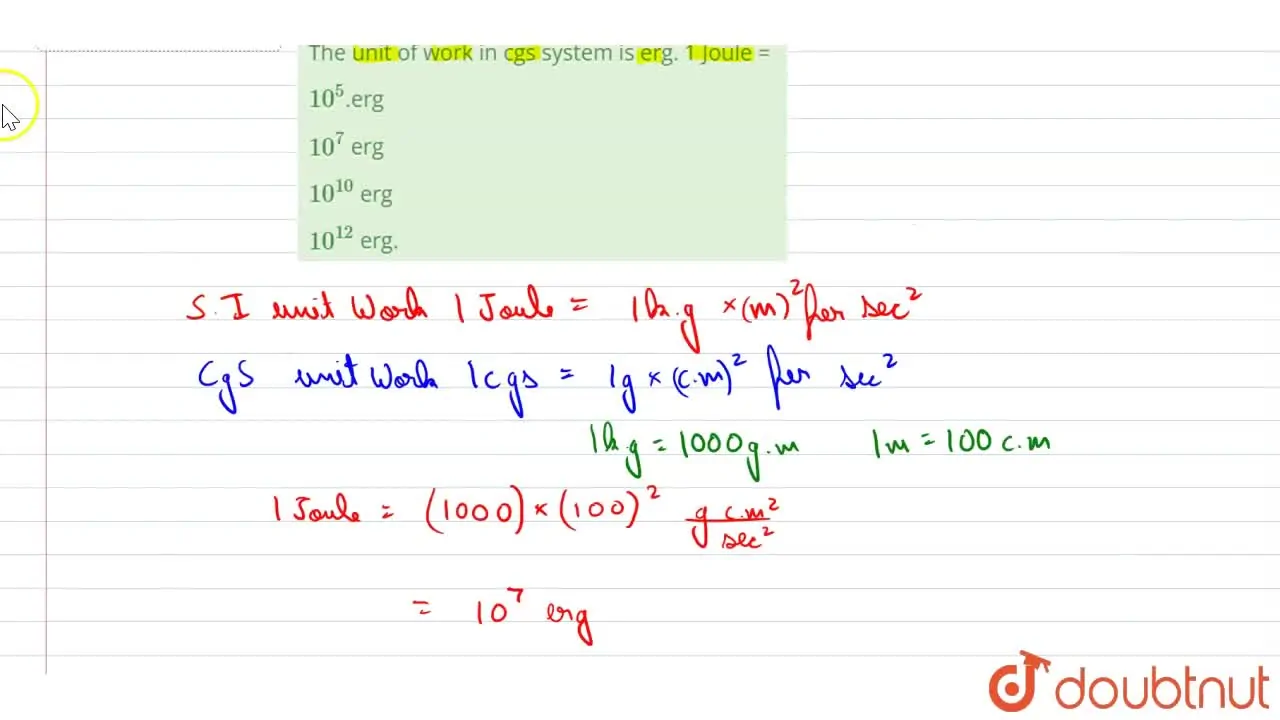 The unit of work in cgs system is erg. 1 Joule =
10⁵.erg
10⁷ erg
10¹⁰ erg
10¹² erg.
S.I unit Work 1 Joule = 1k.g × (m)² per sec²
CgS unit Work 1cgs = 1g × (c.m)² per sec²
1k.g = 1000g.m 1m = 100 c.m
1 Joule = (1000) × (100)² g c.m²/sec²
= 10⁷ erg
doubtnut